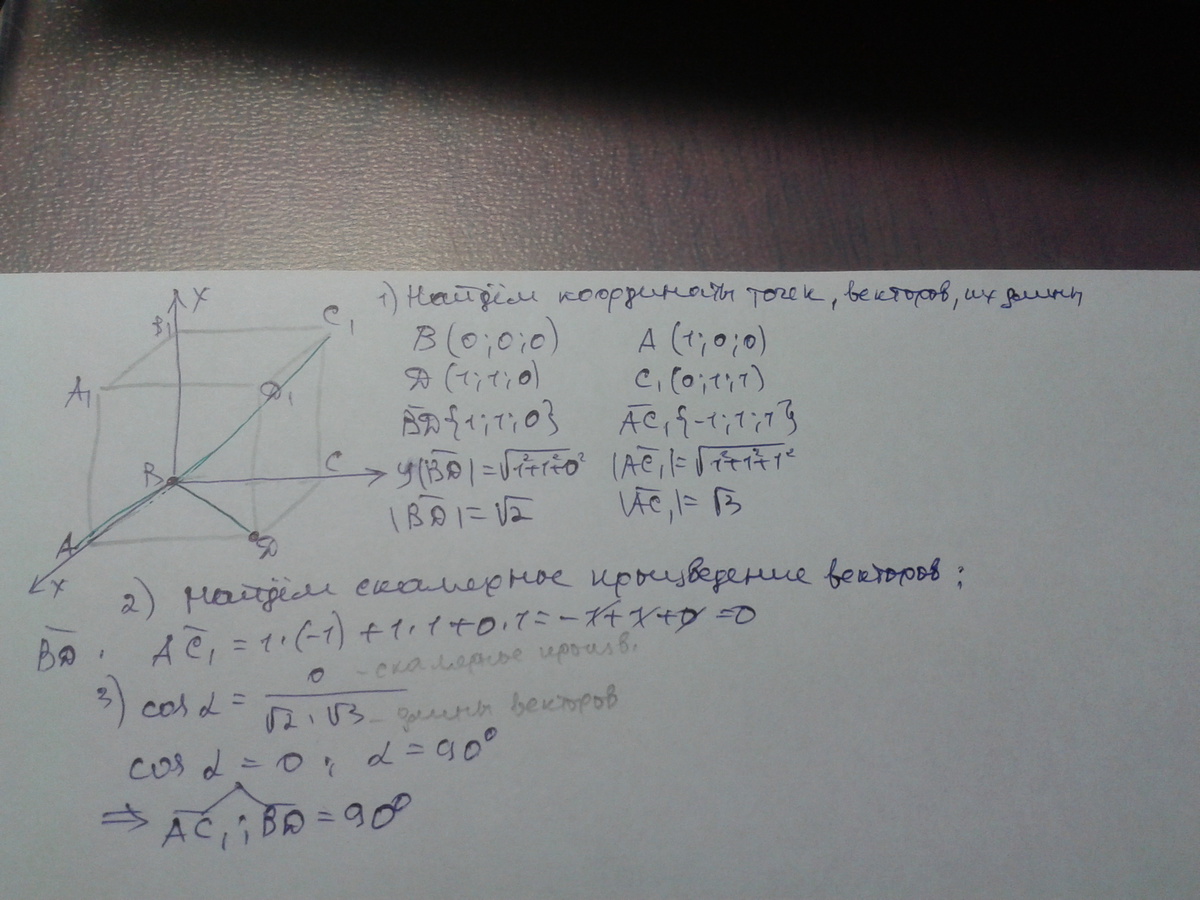 1) Найдём координаты точек, векторов, их длины
B (0;0;0) A (1;0;0)
D (1;1;0) C₁ (0;1;1)
BD {1;1;0} AC₁ {-1;1;1}
|BD| = √1²+1²+0² |AC₁| = √1²+1²+1²
|BD| = √2 |AC₁| = √3
X
B₁
C₁
A₁
D₁
B
C
A
D
X
2) Найдём скалярное произведение векторов:
BD · AC₁ = 1·(-1) + 1·1 + 0·1 = -1 + 1 + 0 = 0
3) cos α = 0 / √2 · √3
- скалярное произв.
- длины векторов
cos α = 0 ; α = 90°
⇒ AC₁ ; BD = 90°